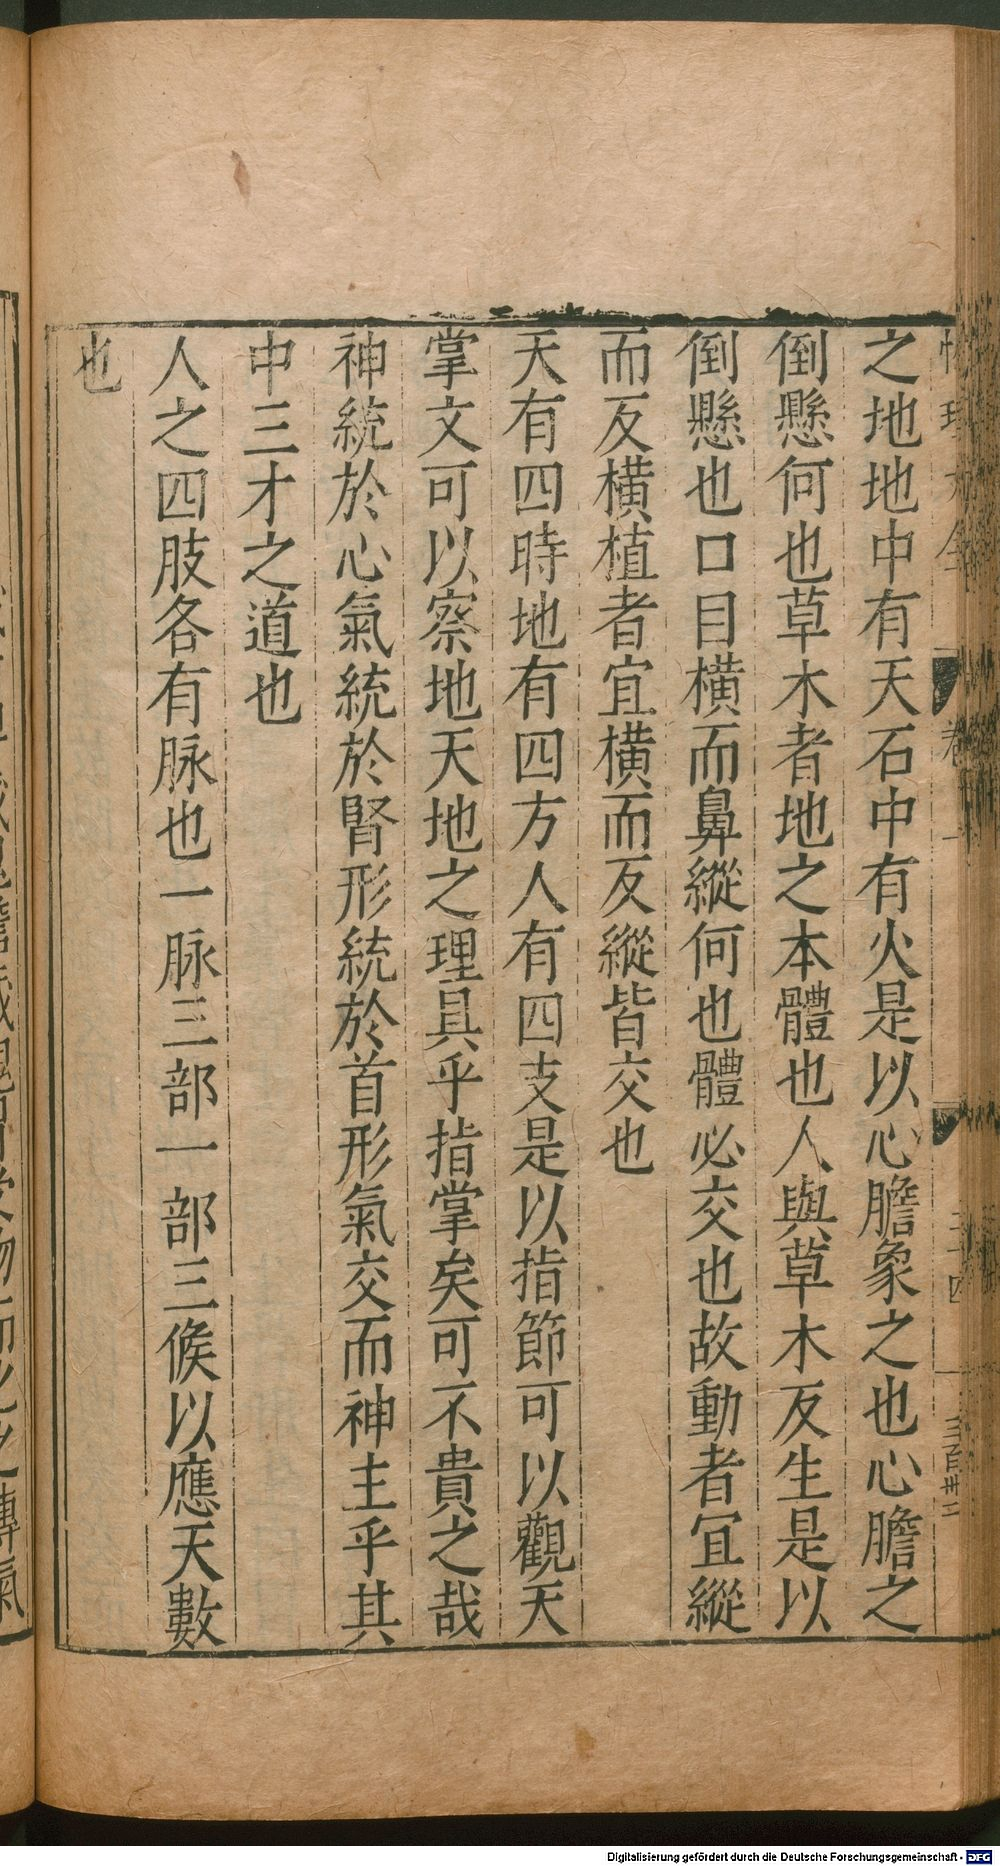 之地地中有天石中有火是以心膽象之也心膽之
倒懸何也草木者地之本體也人與草木反生是以
倒懸也口目橫而鼻縱何也體必交也故動者宜縱
而反橫植者宜橫而反縱皆交也
天有四時地有四方人有四支是以指節可以觀天
掌文可以察地天地之理具乎指掌矣可不貴之哉
神統於心氣統於腎形統於首形氣交而神主乎其
中三才之道也
人之四肢各有脉也一脉三部一部三候以應天數
也
Digitalisierung gefördert durch die Deutsche Forschungsgemeinschaft - DFG